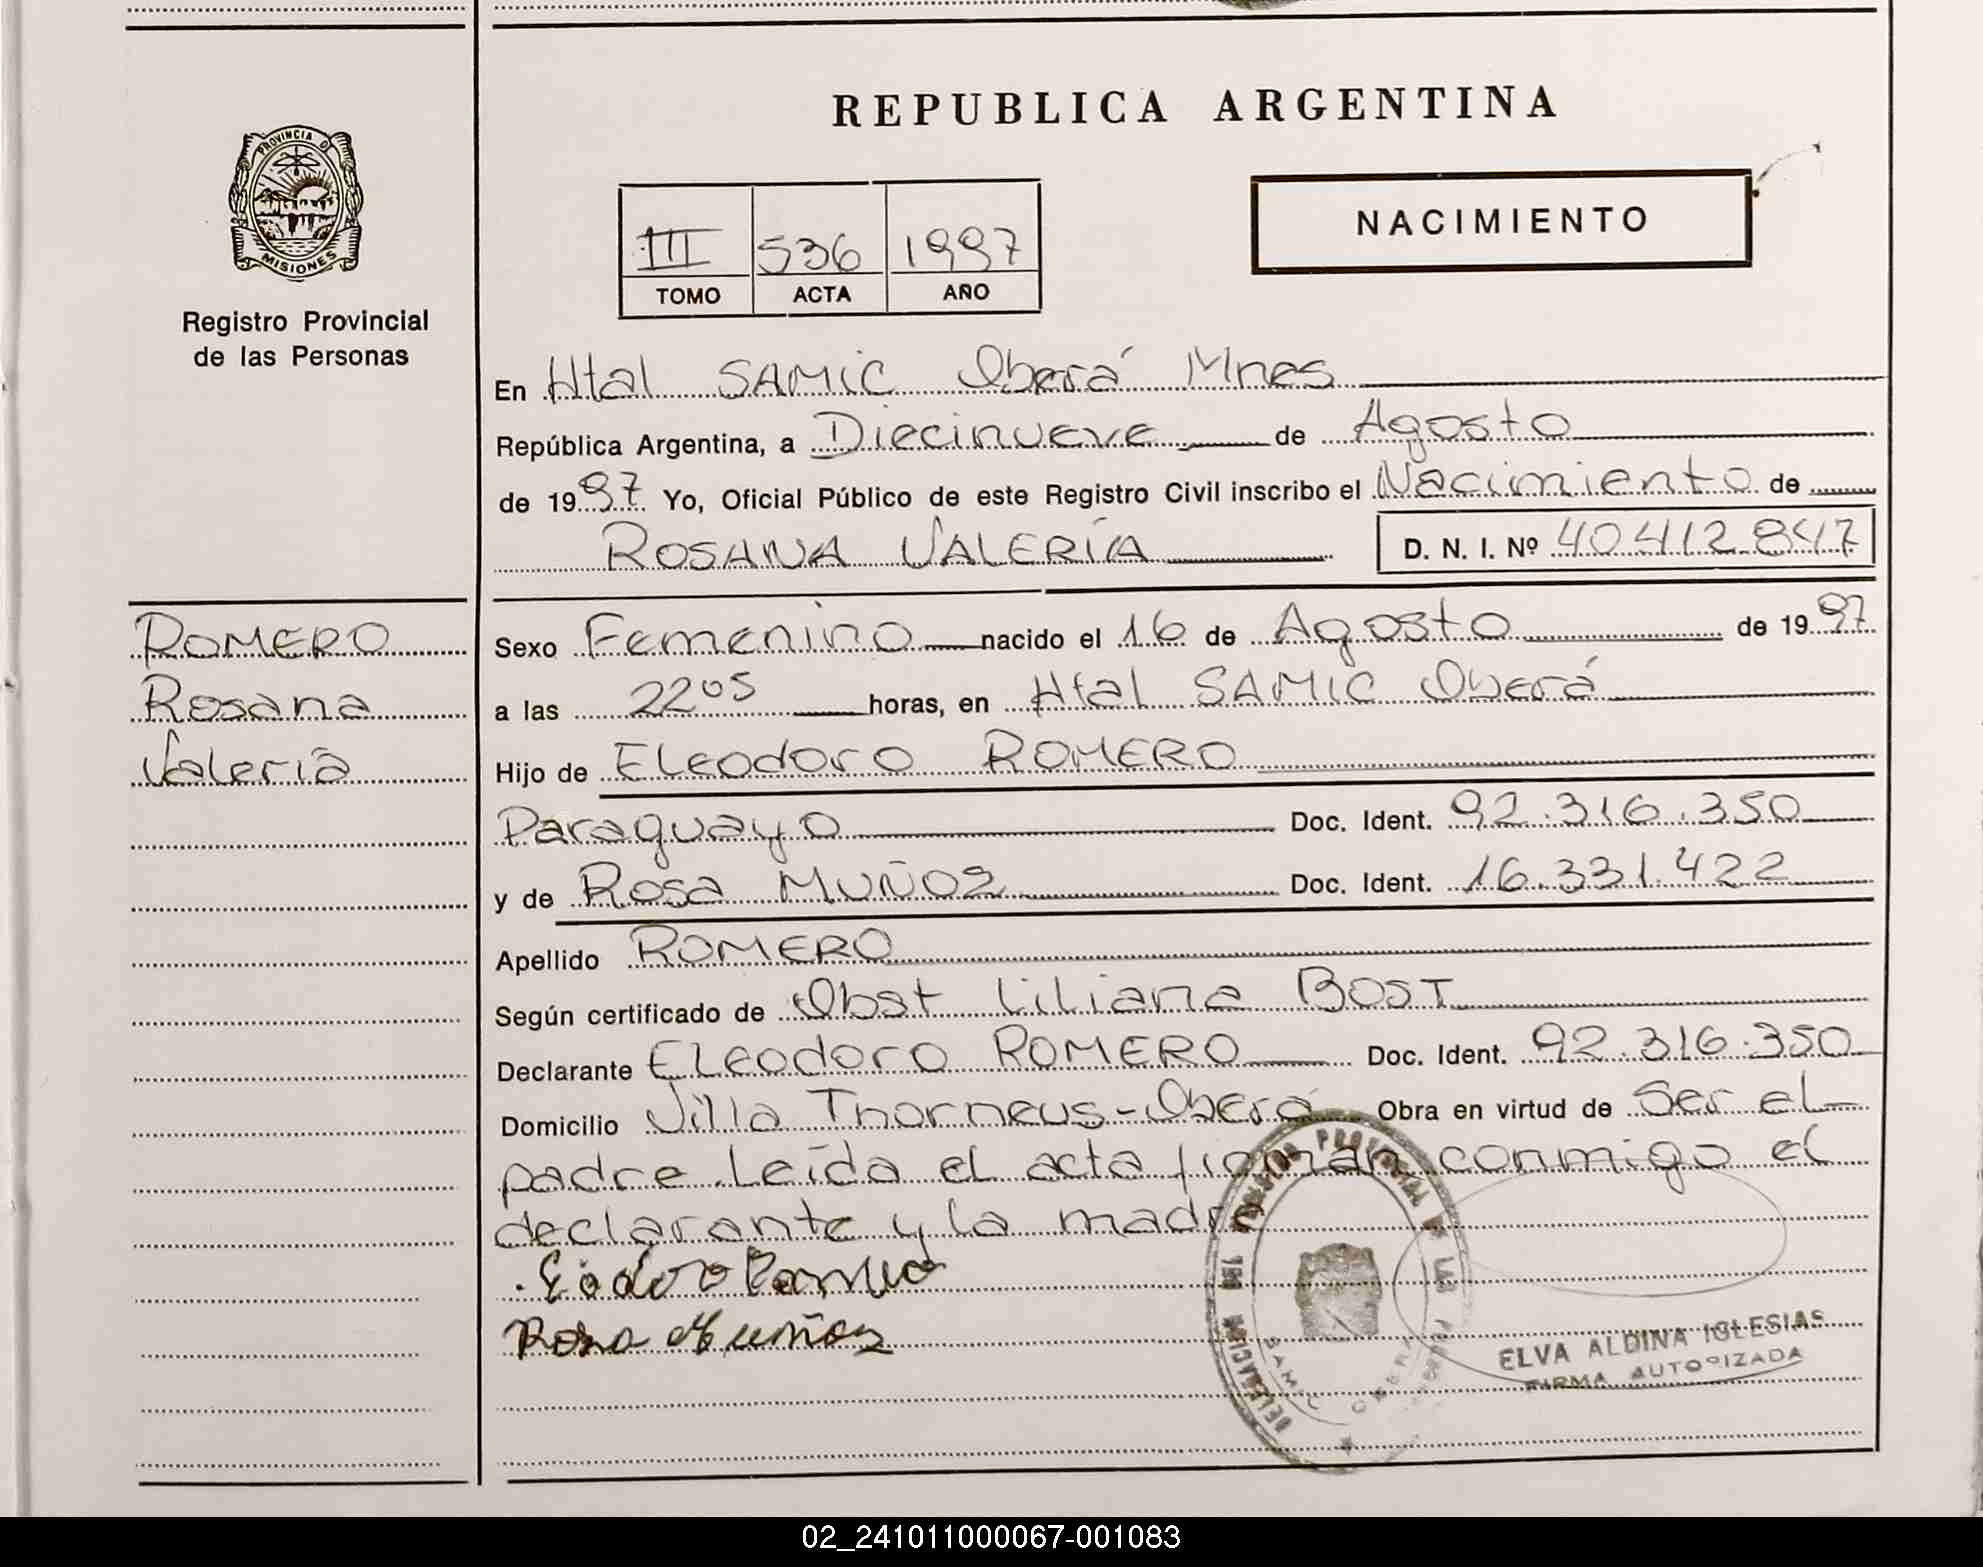 REPUBLICA ARGENTINA
PROVINCIA D
MISIONES
Registro Provincial
de las Personas
III 536 1997
TOMO ACTA AÑO
NACIMIENTO
En Htal SAMIC Oberá Mnes
República Argentina, a Diecinueve de Agosto
de 1997 Yo, Oficial Público de este Registro Civil inscribo el Nacimiento de
ROSANA VALERÍA D. N. I. Nº 40412847
ROMERO
Rosana
Valeria
Sexo Femenino nacido el 16 de Agosto de 1997
a las 2205 horas, en Htal SAMIC Oberá
Hijo de ELeodoro ROMERO
Paraguayo Doc. Ident. 92.316.350
y de Rosa MUÑOZ Doc. Ident. 16.331.422
Apellido ROMERO
Según certificado de Obst Liliana BOST
Declarante ELeodoro ROMERO Doc. Ident. 92.316.350
Domicilio Villa Thorneus-Oberá Obra en virtud de Ser el
padre. Leída el acta firman conmigo el
declarante y la madre
Rosa Muñoz
ELVA ALDINA IGLESIAS
FIRMA AUTORIZADA
02_241011000067-001083